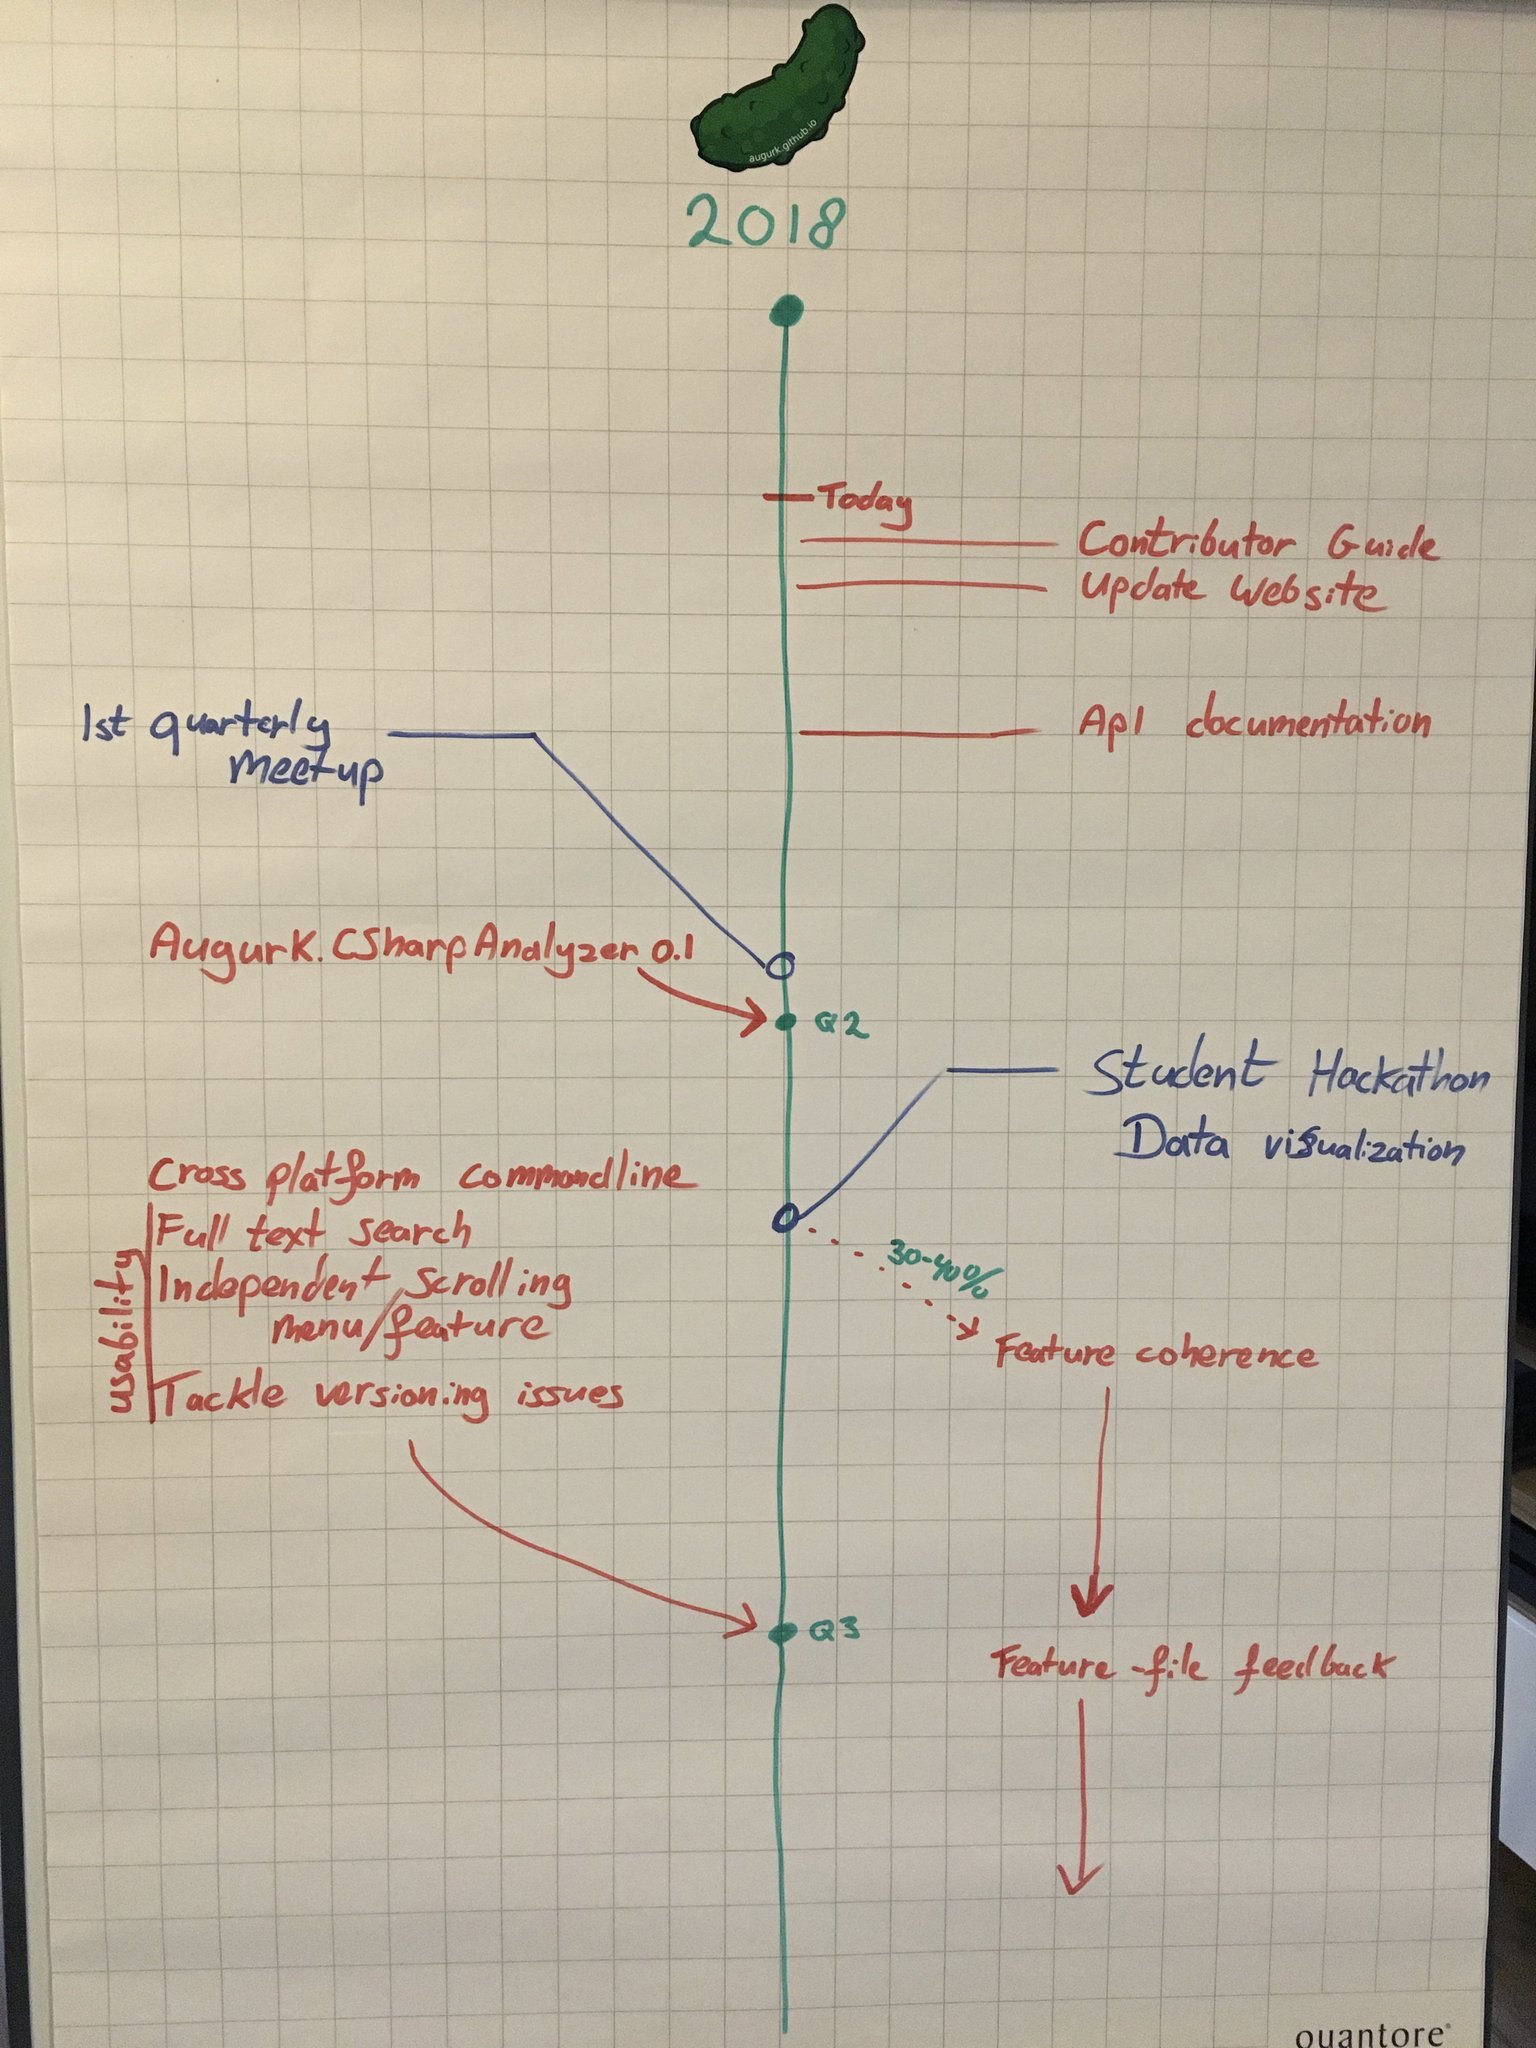 augurk.github.io
2018
Today
Contributor Guide
Update Website
1st quarterly
Meet-up
API documentation
Augurk.CSharpAnalyzer 0.1
Q2
Student Hackathon
Data visualization
Cross platform commandline
usability
Full text search
Independent scrolling
menu/feature
Tackle versioning issues
30-40%
Feature coherence
Q3
Feature-file feedback
quantore